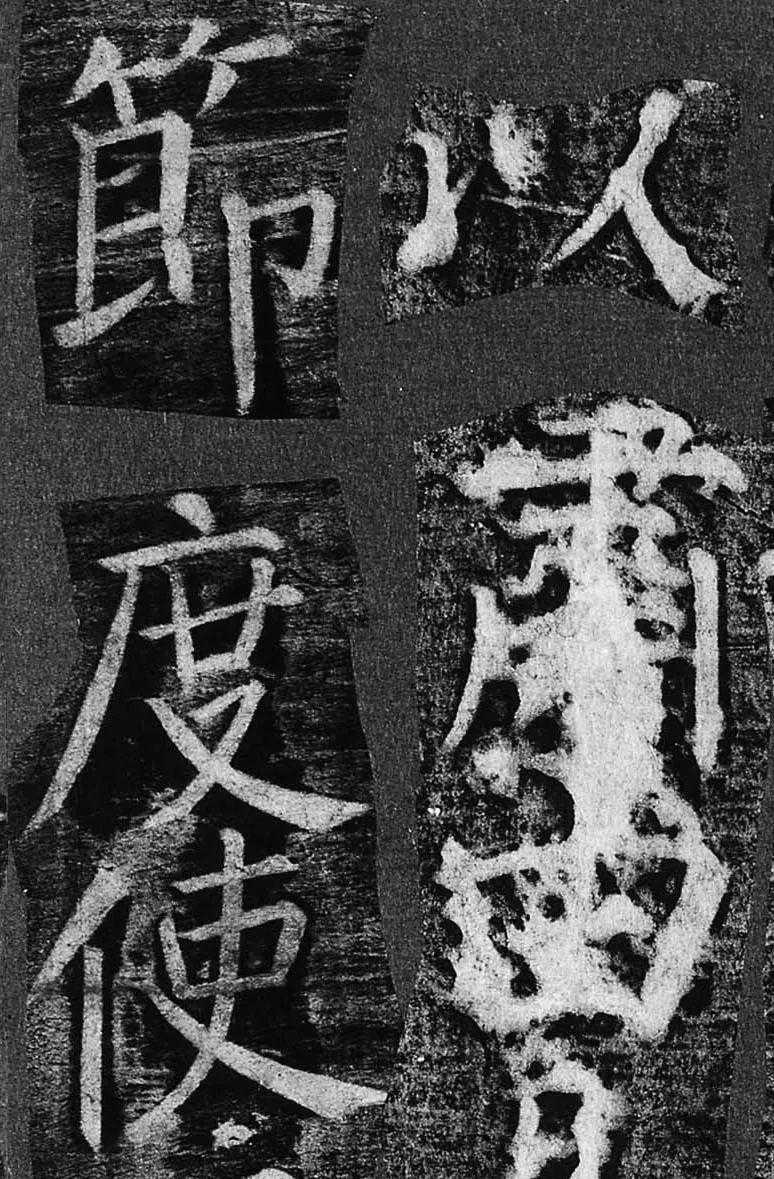 以肅
節度使